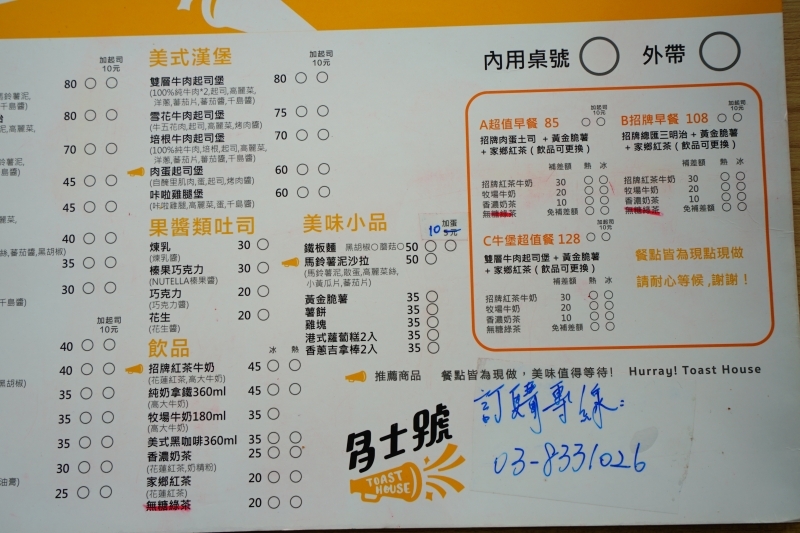 加起司
10元
80
醬鈴薯泥,
千島醬)
80
70
薯泥,
45
40
絲,蕃茄醬,黑胡椒)
35
30
千島醬)
加起司
10元
40
黑胡椒)
40
35
35
35
30
油膏)
25
美式漢堡
加起司
10元
雙層牛肉起司堡 80
(100%純牛肉*2,起司,高麗菜,
洋蔥,蕃茄片,蕃茄醬,千島醬)
雪花牛肉起司堡 75
(牛五花肉,起司,高麗菜,烤肉醬)
培根牛肉起司堡 70
(100%純牛肉,培根,起司,高麗菜,
洋蔥,蕃茄片,蕃茄醬,千島醬)
肉蛋起司堡 60
(自醃里肌肉,蛋,起司,烤肉醬)
咔啦雞腿堡 60
(咔啦雞腿,高麗菜,蛋,千島醬)
果醬類吐司
煉乳 30
(煉乳醬)
榛果巧克力 30
(NUTELLA榛果醬)
巧克力 20
(巧克力醬)
花生 20
(花生醬)
飲品
冰 熱
招牌紅茶牛奶 45
(花蓮紅茶,高大牛奶)
純奶拿鐵360ml 45
(高大牛奶)
牧場牛奶180ml 35
(高大牛奶)
美式黑咖啡360ml 35
香濃奶茶 25
(花蓮紅茶,奶精粉)
家鄉紅茶 20
(花蓮紅茶)
無糖綠茶 20
美味小品
加蛋
10 5元
鐵板麵 黑胡椒○蘑菇○ 50
馬鈴薯泥沙拉 50
(馬鈴薯泥,散蛋,高麗菜絲,
小黃瓜片,蕃茄片)
黃金脆薯 35
薯餅 35
雞塊 35
港式蘿蔔糕2入 35
香蔥吉拿棒2入 35
推薦商品 餐點皆為現做,美味值得等待! Hurray! Toast House
多士號
TOAST
HOUSE
訂購專線:
03-8331026
內用桌號 外帶
A超值早餐 85
加起司
10元
招牌肉蛋土司 + 黃金脆薯
+ 家鄉紅茶 ( 飲品可更換 )
補差額 熱 冰
招牌紅茶牛奶 30
牧場牛奶 20
香濃奶茶 10
無糖綠茶 免補差額
B招牌早餐 108
加起司
10元
招牌總匯三明治 + 黃金脆薯
+ 家鄉紅茶 ( 飲品可更換 )
補差額 熱 冰
招牌紅茶牛奶 30
牧場牛奶 20
香濃奶茶 10
無糖綠茶 免補差額
C牛堡超值餐 128
加起司
10元
雙層牛肉起司堡 + 黃金脆薯
+ 家鄉紅茶 ( 飲品可更換 )
補差額 熱 冰
招牌紅茶牛奶 30
牧場牛奶 20
香濃奶茶 10
無糖綠茶 免補差額
餐點皆為現點現做
請耐心等候 ,謝謝 !